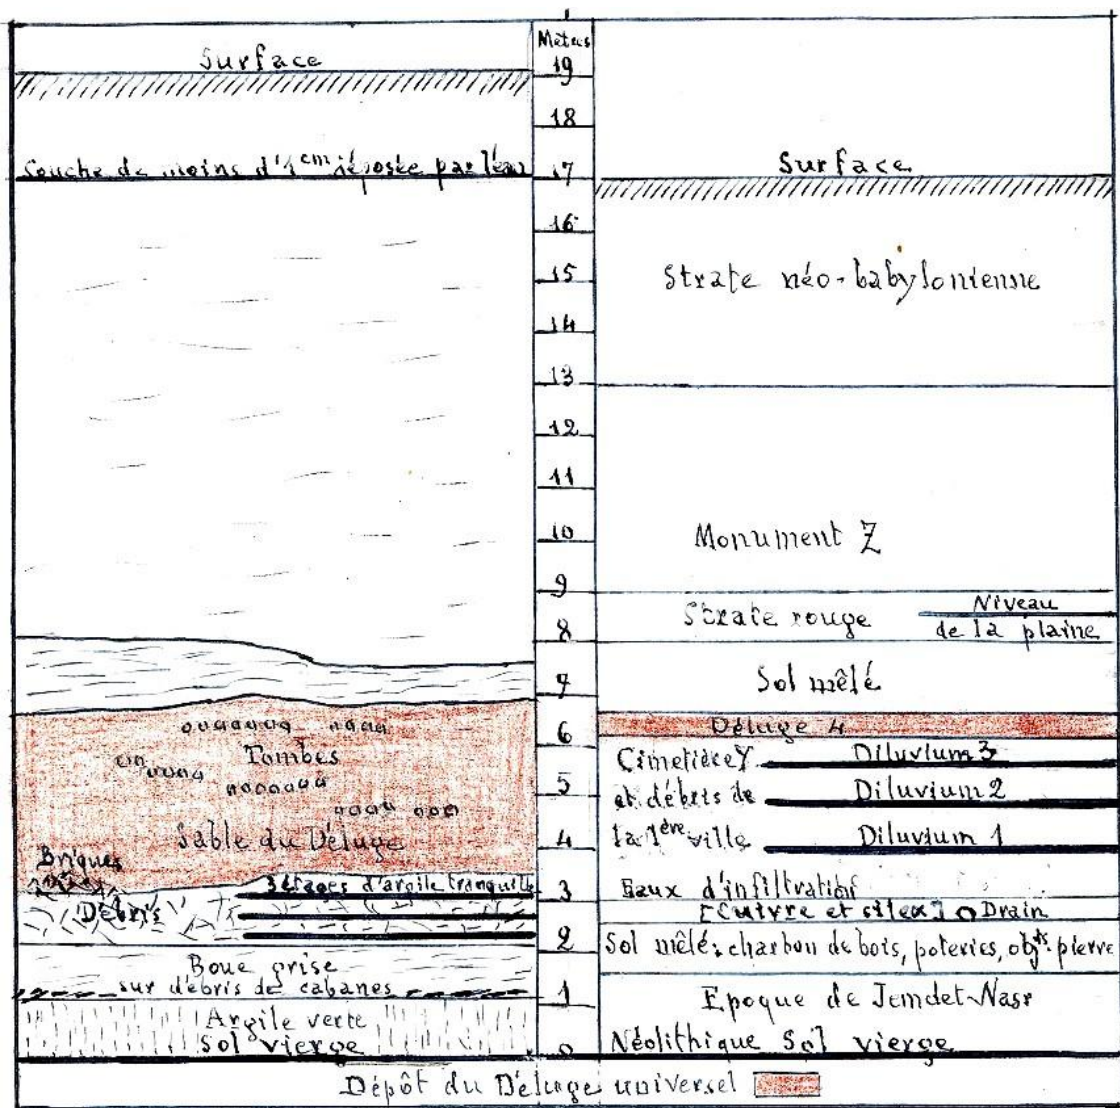 Surface
Couche de moins d'1 cm déposée par l'eau
Tombes
Sable du Déluge
Briques
3 étages d'argile tranquille
Débris
Boue grise
sur débris de cabanes
Argile verte
Sol vierge
Mètres
19
18
17
16
15
14
13
12
11
10
9
8
7
6
5
4
3
2
1
0
Surface
Strate néo-babylonienne
Monument Z
Strate rouge
Niveau
de la plaine
Sol mêlé
Déluge 4
Cimetière Y Diluvium 3
et débris de Diluvium 2
la 1ère ville Diluvium 1
Eaux d'infiltration
[Cuivre et silex] Drain
Sol mêlé: charbon de bois, poteries, objts pierre
Epoque de Jemdet-Nasr
Néolithique Sol vierge
Dépôt du Déluge universel